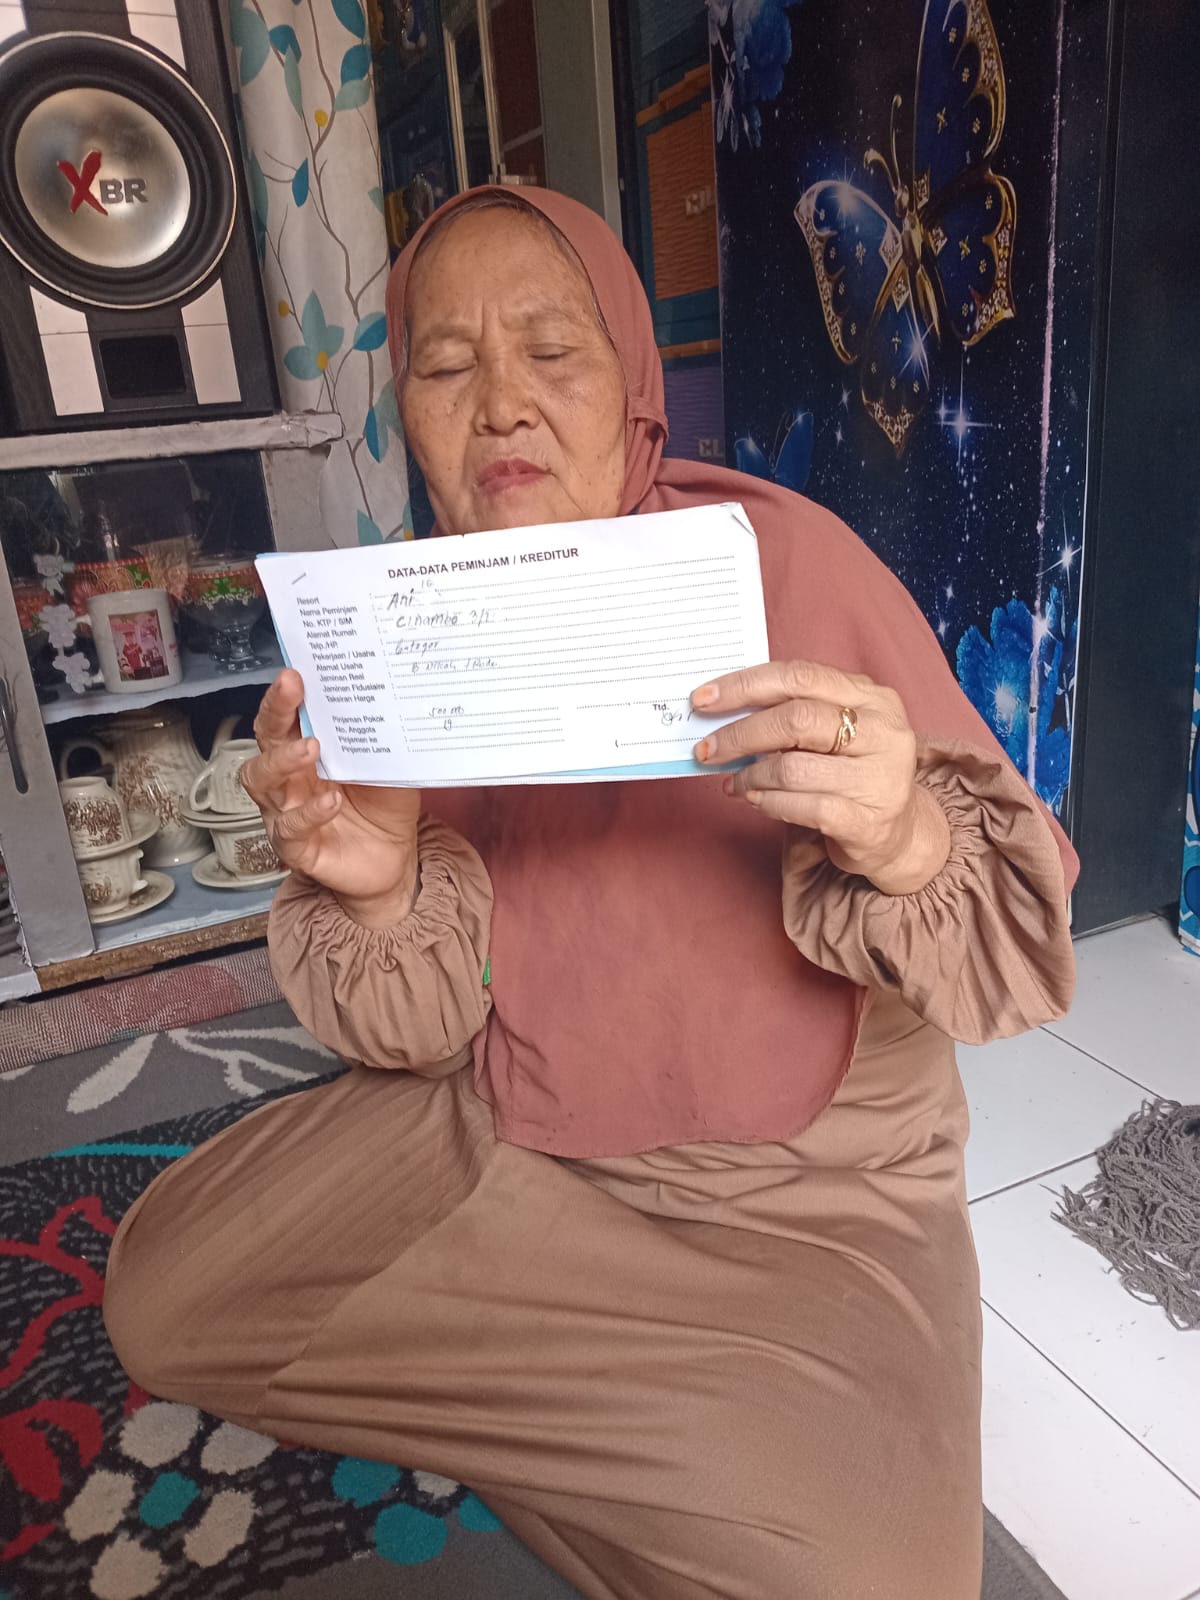 XBR
DATA-DATA PEMINJAM / KREDITUR
Resort : 16
Nama Peminjam : Ani
No. KTP / SIM :
Alamat Rumah : Cinambo 3/2
Telp./HP :
Pekerjaan / Usaha :
Alamat Usaha :
Jaminan Real :
Jaminan Fidusiaire :
Taksiran Harga :
Pinjaman Pokok : 500.000
No. Anggota : 19
Pinjaman ke :
Pinjaman Lama :
Ttd.